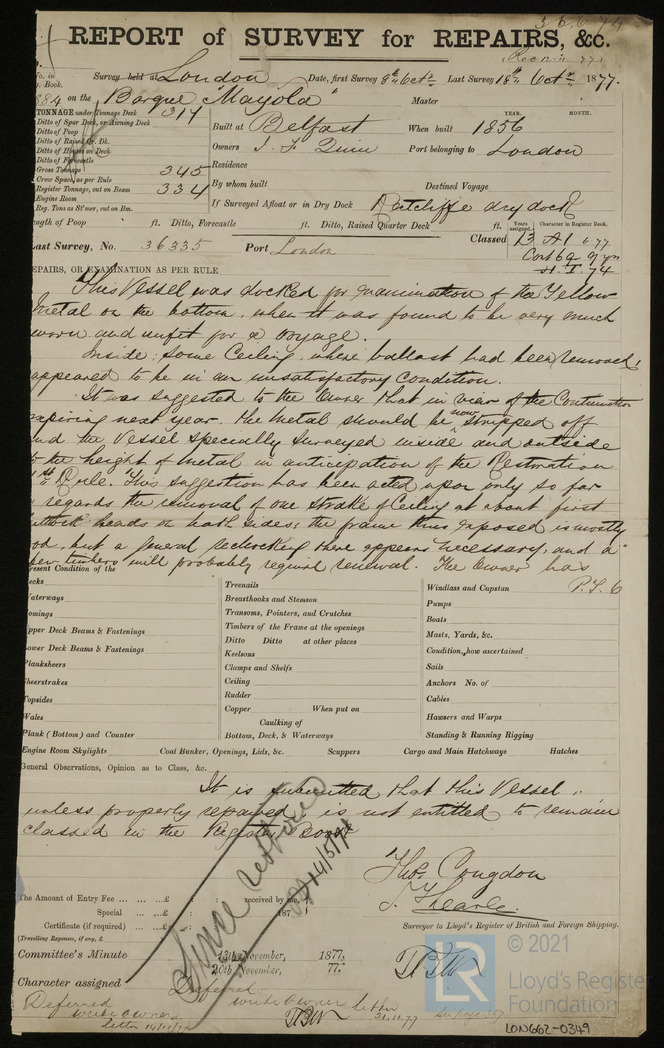 36674
REPORT of SURVEY for REPAIRS, &c.
No. in Survey held at London Date, first Survey 8th Octr. Last Survey 18th Octr. 1877.
Book.
884 on the Barque "Mayola" Master
TONNAGE under Tonnage Deck 314
Ditto of Spar Deck, or Awning Deck
Ditto of Poop
Ditto of Raised Qr. Dk.
Ditto of Houses on Deck
Ditto of Forecastle
Gross Tonnage 345
Crew Space, as per Rule
Register Tonnage, cut on Beam 334
Engine Room
Reg. Tons as St'mer, cut on Bm.
YEAR. MONTH.
Built at Belfast When built 1856
Owners J. F. Quin Port belonging to London
Residence
By whom built Destined Voyage
If Surveyed Afloat or in Dry Dock Ratcliffe dry dock
Length of Poop ft. Ditto, Forecastle ft. Ditto, Raised Quarter Deck ft.
Years assigned. Character in Register Book.
Last Survey, No. 36335 Port London Classed 13 A1 6.77
Cont 69 9 yrs
H. T. 74
REPAIRS, OR EXAMINATION AS PER RULE
This Vessel was docked for examination of the Yellow
Metal on the bottom, when it was found to be very much
worn and unfit for a voyage.
Inside, some Ceiling, where ballast had been removed,
appeared to be in an unsatisfactory condition.
It was suggested to the Owner that in view of the Continuation
expiring next year, the metal should be now stripped off
and the Vessel specially Surveyed inside and outside
to the height of metal in anticipation of the Restoration
Rule. This suggestion has been acted upon only so far
as regards the removal of one strake of Ceiling at about first
futtock heads on both sides; the frame thus exposed is mostly
good, but a general rechocking there appears necessary, and a
few timbers will probably require renewal. The Owner has
P.T.O
Present Condition of the
Decks
Waterways
Comings
Upper Deck Beams & Fastenings
Lower Deck Beams & Fastenings
Planksheers
Sheerstrakes
Topsides
Wales
Plank (Bottom) and Counter
Treenails
Breasthooks and Stemson
Transoms, Pointers, and Crutches
Timbers of the Frame at the openings
Ditto Ditto at other places
Keelsons
Clamps and Shelfs
Ceiling
Rudder
Copper When put on
Caulking of
Bottom, Deck, & Waterways
Windlass and Capstan
Pumps
Boats
Masts, Yards, &c.
Condition, how ascertained
Sails
Anchors No. of
Cables
Hawsers and Warps
Standing & Running Rigging
Engine Room Skylights Coal Bunker, Openings, Lids, &c. Scuppers Cargo and Main Hatchways Hatches
General Observations, Opinion as to Class, &c.
It is submitted that this Vessel,
unless properly repaired, is not entitled to remain
classed in the Register Book
Since restored
14/5/78
Thos. Congdon
J. Thearle.
The Amount of Entry Fee ... ... ...£ : : received by me,
Special ... ...£ : : 187
Certificate (if required) ... ...£
(Travelling Expenses, if any, £
Surveyor to Lloyd's Register of British and Foreign Shipping.
Committee's Minute 13th November, 1877.
20th November, 77.
Character assigned Deferred
Deferred write Owner
letter 14/11/77
write Owner letter
21.11.77
LR
© 2021
Lloyd's Register
Foundation
LON662-0349